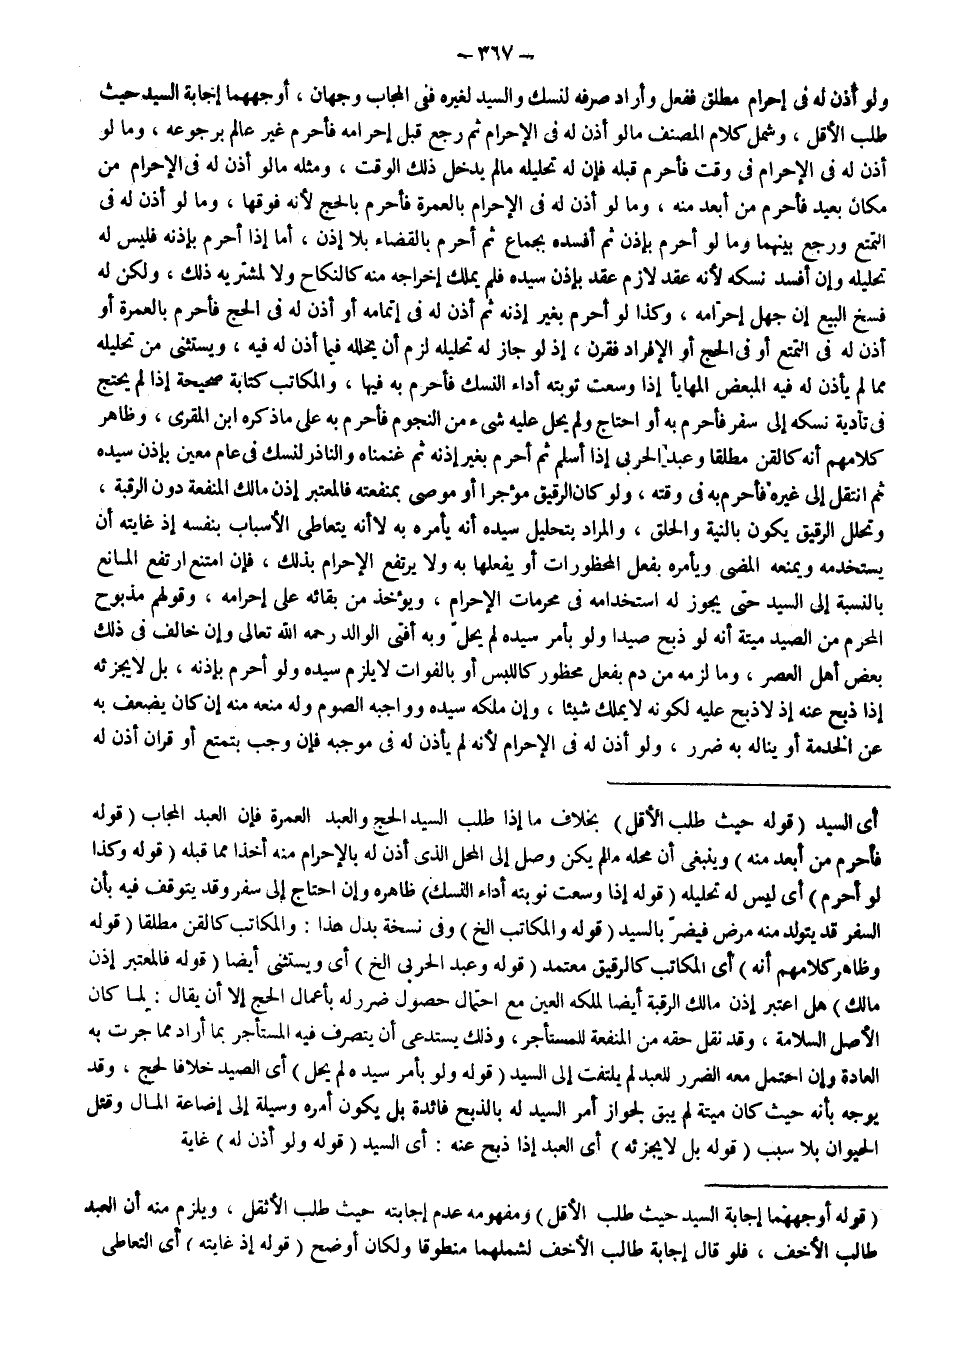 – ٣٦٧ –
ولو أذن له فى إحرام مطلق ففعل وأراد صرفه لنسك والسيد لغيره فنى المجاب وجهان ، أوجههما إجابة السيد حيث
طلب الأقل ، وشمل كلام المصنف مالو أذن له فى الإحرام ثم رجع قبل إحرامه فأحرم غير عالم برجوعه ، وما لو
أذن له فى الإحرام فى وقت فأحرم قبله فإن له تحليله مالم يدخل ذلك الوقت ، ومثله مالو أذن له فى الإحرام من
مكان بعيد فأحرم من أبعد منه ، وما لو أذن له فى الإحرام بالعمرة فأحرم بالحج لأنه فوقها ، وما لو أذن له فى
التمتع ورجع بينهما وما لو أحرم بإذن ثم أفسده بجماع ثم أحرم بالقضاء بلا إذن ، أما إذا أحرم بإذنه فليس له
تحليله وإن أفسد نسكه لأنه عقد لازم عقد بإذن سيده فلم يملك إخراجه منه كالنكاح ولا لمشتريه ذلك ، ولكن له
فسخ البيع إن جهل إحرامه ، وكذا لو أحرم بغير إذنه ثم أذن له فى إتمامه أو أذن له فى الحج فأحرم بالعمرة أو
أذن له فى التمتع أو فى الحج أو الإفراد فقرن ، إذ لو جاز له تحليله لزم أن يحلله فيما أذن له فيه ، ويستثنى من تحليله
مما لم يأذن له فيه المبعض المهايأ إذا وسعت توبته أداء النسك فأحرم به فيها ، والمكاتب كتابة صحيحة إذا لم يحتج
فى تأدية نسكه إلى سفر فأحرم به أو احتاج ولم يحل عليه شىء من النجوم فأحرم به على ماذكره ابن المقرى ، وظاهر
كلامهم أنه كالقن مطلقا وعبد الحربى إذا أسلم ثم أحرم بغير إذنه ثم غنمناه والناذر لنسك فى عام معين بإذن سيده
ثم انتقل إلى غيره فأحرم به فى وقته ، ولو كان الرقيق مؤجرا أو موصى بمنفعته فالمعتبر إذن مالك المنفعة دون الرقبة ،
وتحلل الرقيق يكون بالنية والحلق ، والمراد بتحليل سيده أنه يأمره به لاأنه يتعاطى الأسباب بنفسه إذ غايته أن
يستخدمه ويمنعه المضى ويأمره بفعل المحظورات أو يفعلها به ولا يرتفع الإحرام بذلك ، فإن امتنع ارتفع المانع
بالنسبة إلى السيد حتى يجوز له استخدامه فى محرمات الإحرام ، ويؤخذ من بقائه على إحرامه ، وقولهم مذبوح
المحرم من الصيد ميتة أنه لو ذبح صيدا ولو بأمر سيده لم يحلّ وبه أفتى الوالد رحمه الله تعالى وإن خالف فى ذلك
بعض أهل العصر ، وما لزمه من دم بفعل محظور كاللبس أو بالفوات لايلزم سيده ولو أحرم بإذنه ، بل لايجزئه
إذا ذبح عنه إذ لاذبح عليه لكونه لايملك شيئا ، وإن ملكه سيده وواجبه الصوم وله منعه منه إن كان يضعف به
عن الخدمة أو يناله به ضرر ، ولو أذن له فى الإحرام لأنه لم يأذن له فى موجبه فإن وجب بتمتع أو قران أذن له
أى السيد ( قوله حيث طلب الأقل ) بخلاف ما إذا طلب السيد الحج والعبد العمرة فإن العبد المجاب ( قوله
فأحرم من أبعد منه ) وينبغى أن محله مالم يكن وصل إلى المحل الذى أذن له بالإحرام منه أخذا مما قبله ( قوله وكذا
لو أحرم ) أى ليس له تحليله ( قوله إذا وسعت نوبته أداء النسك) ظاهره وإن احتاج إلى سفر وقد يتوقف فيه بأن
السفر قد يتولد منه مرض فيضرّ بالسيد ( قوله والمكاتب الخ ) وفى نسخة بدل هذا : والمكاتب كالقن مطلقا ( قوله
وظاهر كلامهم أنه ) أى المكاتب كالرقيق معتمد ( قوله وعبد الحربى الخ ) أى ويستثنى أيضا ( قوله فالمعتبر إذن
مالك ) هل اعتبر إذن مالك الرقبة أيضا لملكه العين مع احتمال حصول ضرر له بأعمال الحج إلا أن يقال : لما كان
الأصل السلامة ، وقد نقل حقه من المنفعة للمستأجر ، وذلك يستدعى أن يتصرف فيه المستأجر بما أراد مما جرت به
العادة وإن احتمل معه الضرر للعبد لم يلتفت إلى السيد ( قوله ولو بأمر سيده لم يحل ) أى الصيد خلافا لحج ، وقد
يوجه بأنه حيث كان ميتة لم يبق لجواز أمر السيد له بالذبح فائدة بل يكون أمره وسيلة إلى إضاعة المال وقتل
الحيوان بلا سبب ( قوله بل لايجزئه ) أى العبد إذا ذبح عنه : أى السيد ( قوله ولو أذن له ) غاية
( قوله أوجههما إجابة السيد حيث طلب الأقل ) ومفهومه عدم إجابته حيث طلب الأثقل ، ويلزم منه أن العبد
طالب الأخف ، فلو قال إجابة طالب الأخف لشملهما منطوقا ولكان أوضح ( قوله إذ غايته ) أى التعاطى